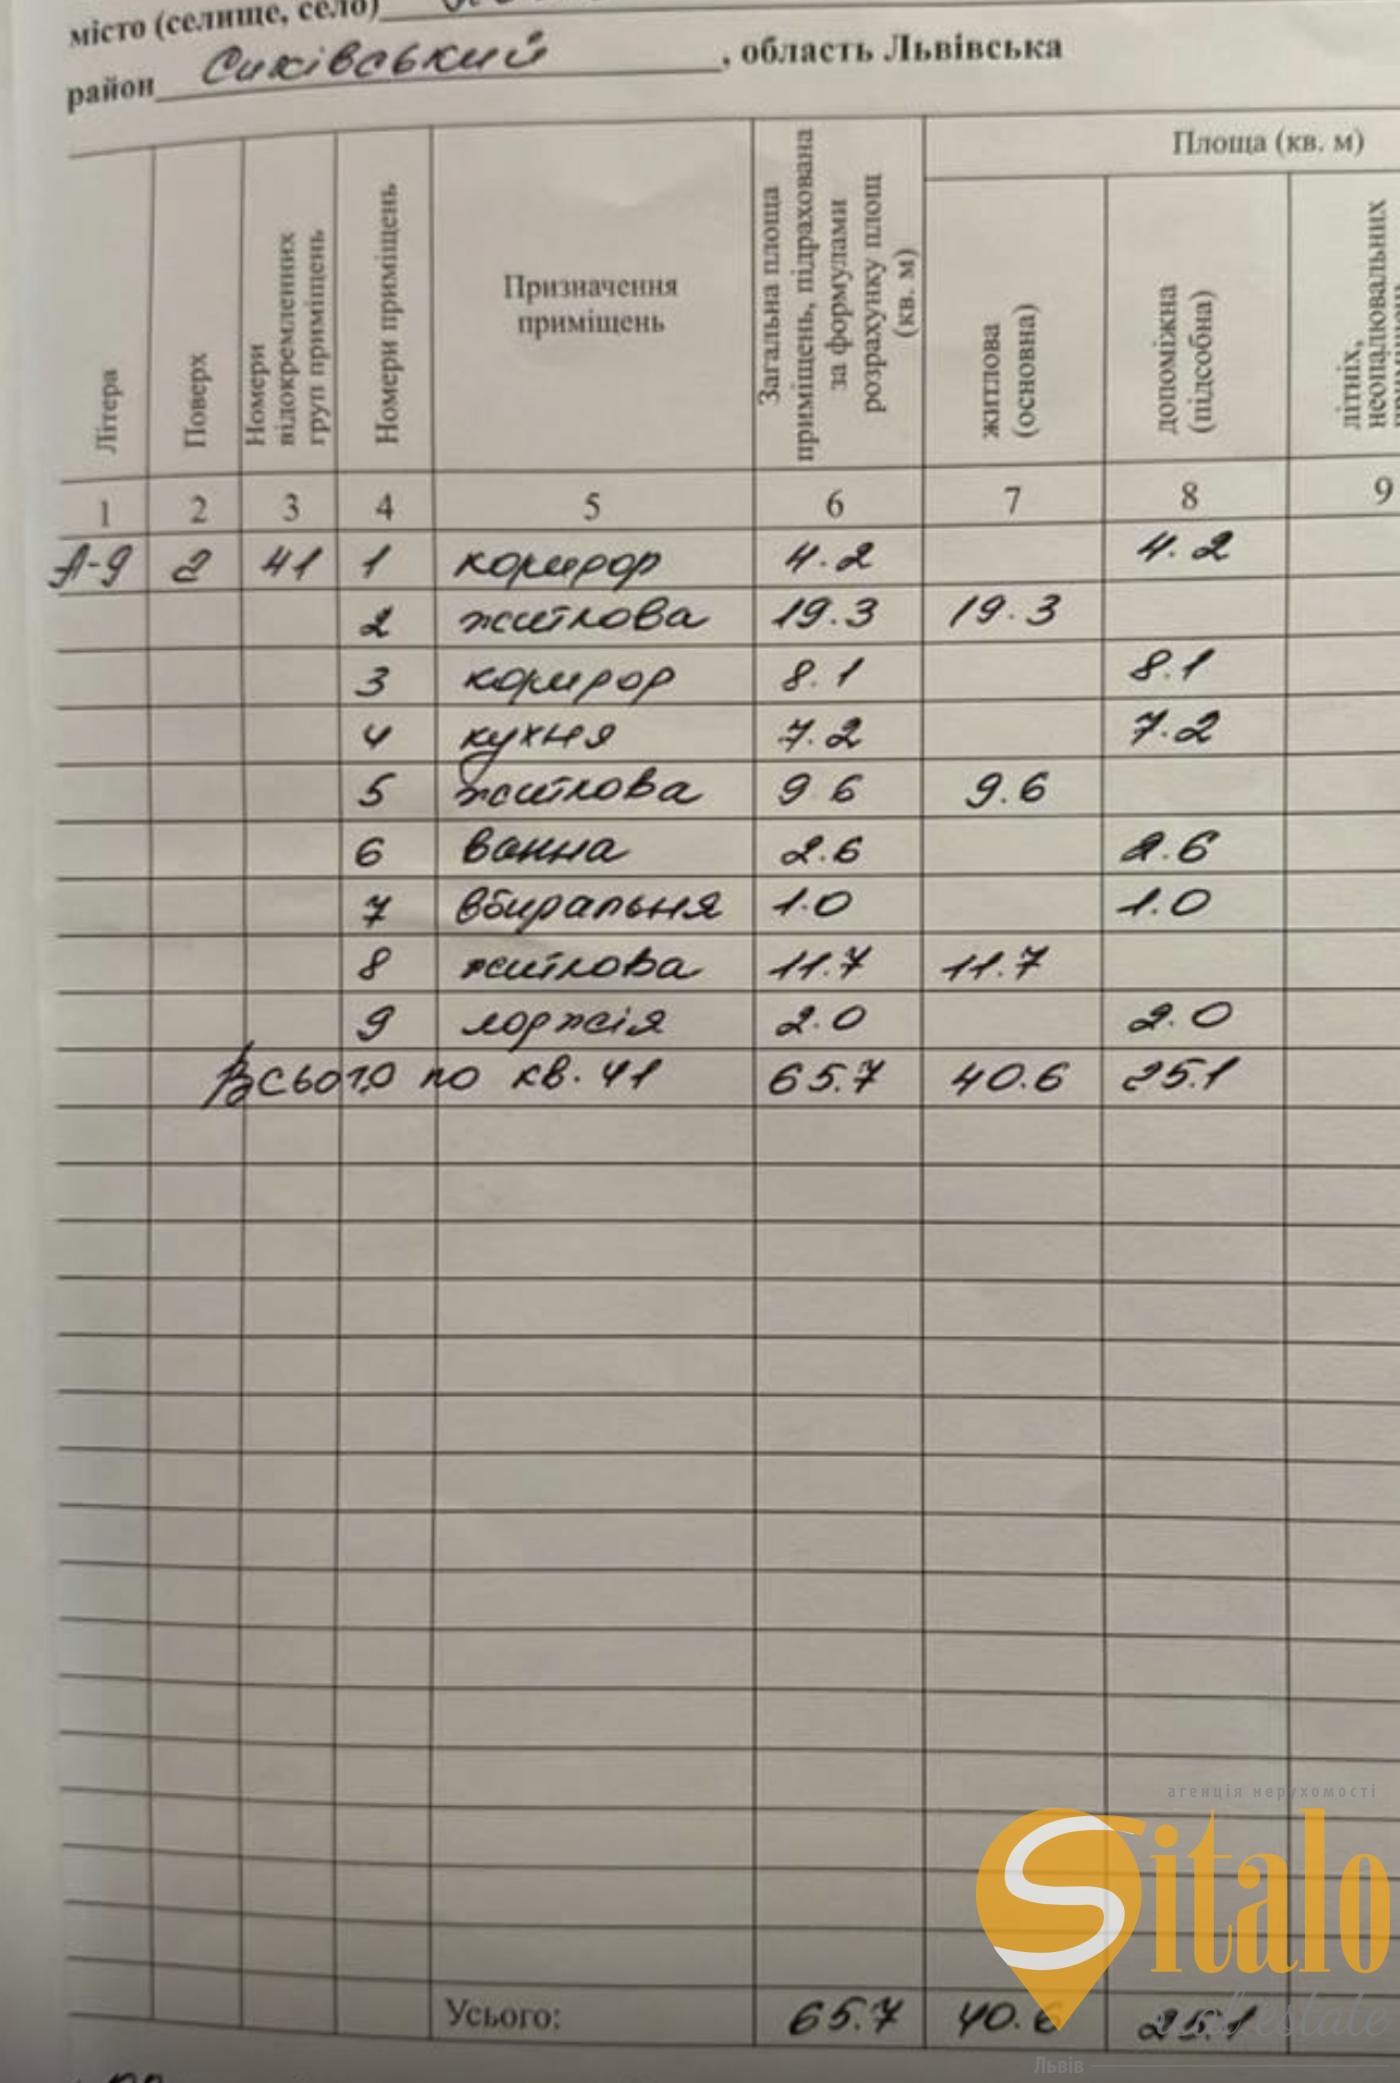 місто (селище, село)
район Сихівський, область Львівська
Літера
Поверх
Номери відокремленних груп приміщень
Номери приміщень
Призначення приміщень
Загальна площа приміщень, підрахована за формулами розрахунку площ (кв. м)
Площа (кв. м)
житлова (основна)
допоміжна (підсобна)
літніх, неопалювальних
1 2 3 4 5 6 7 8 9
А-9 2 41 1 коридор 4.2 4.2
2 житлова 19.3 19.3
3 коридор 8.1 8.1
4 кухня 7.2 7.2
5 житлова 9 6 9.6
6 ванна 2.6 2.6
7 вбиральня 1.0 1.0
8 житлова 11.7 11.7
9 лоджія 2.0 2.0
Всього по кв. 41 65.7 40.6 25.1
Усього: 65.7 40.6 25.1
агенція нерухомості
Sitalo
real estate
Львів